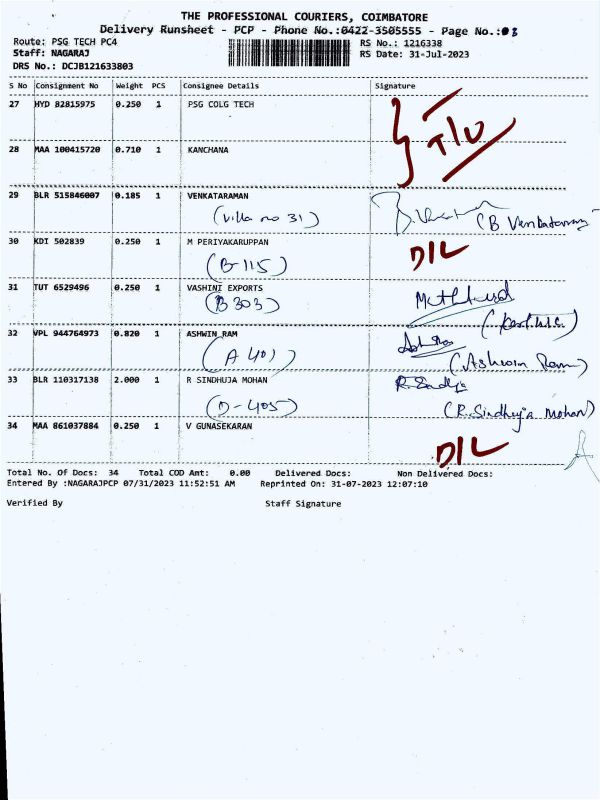 THE PROFESSIONAL COURIERS, COIMBATORE
Delivery Runsheet - PCP - Phone No.:0422-3505555 - Page No.:03
Route: PSG TECH PC4 RS No.: 1216338
Staff: NAGARAJ RS Date: 31-Jul-2023
DRS No.: DCJB121633803
S No Consignment No Weight PCS Consignee Details Signature
27 HYD 82815975 0.250 1 PSG COLG TECH
28 MAA 100415720 0.710 1 KANCHANA
29 BLR 515846007 0.185 1 VENKATARAMAN
(Villa no 31)
30 KDI 502839 0.250 1 M PERIYAKARUPPAN D/L
(B-115)
31 TUT 6529496 0.250 1 VASHINI EXPORTS
(B 303)
32 VPL 944764973 0.820 1 ASHWIN RAM
(A 401) (Ashwin Ram)
33 BLR 110317138 2.000 1 R SINDHUJA MOHAN R. Sindhuja
(D-405) (R. Sindhuja Mohan)
34 MAA 861037884 0.250 1 V GUNASEKARAN D/L
Total No. Of Docs: 34 Total COD Amt: 0.00 Delivered Docs: Non Delivered Docs:
Entered By :NAGARAJPCP 07/31/2023 11:52:51 AM Reprinted On: 31-07-2023 12:07:10
Verified By Staff Signature